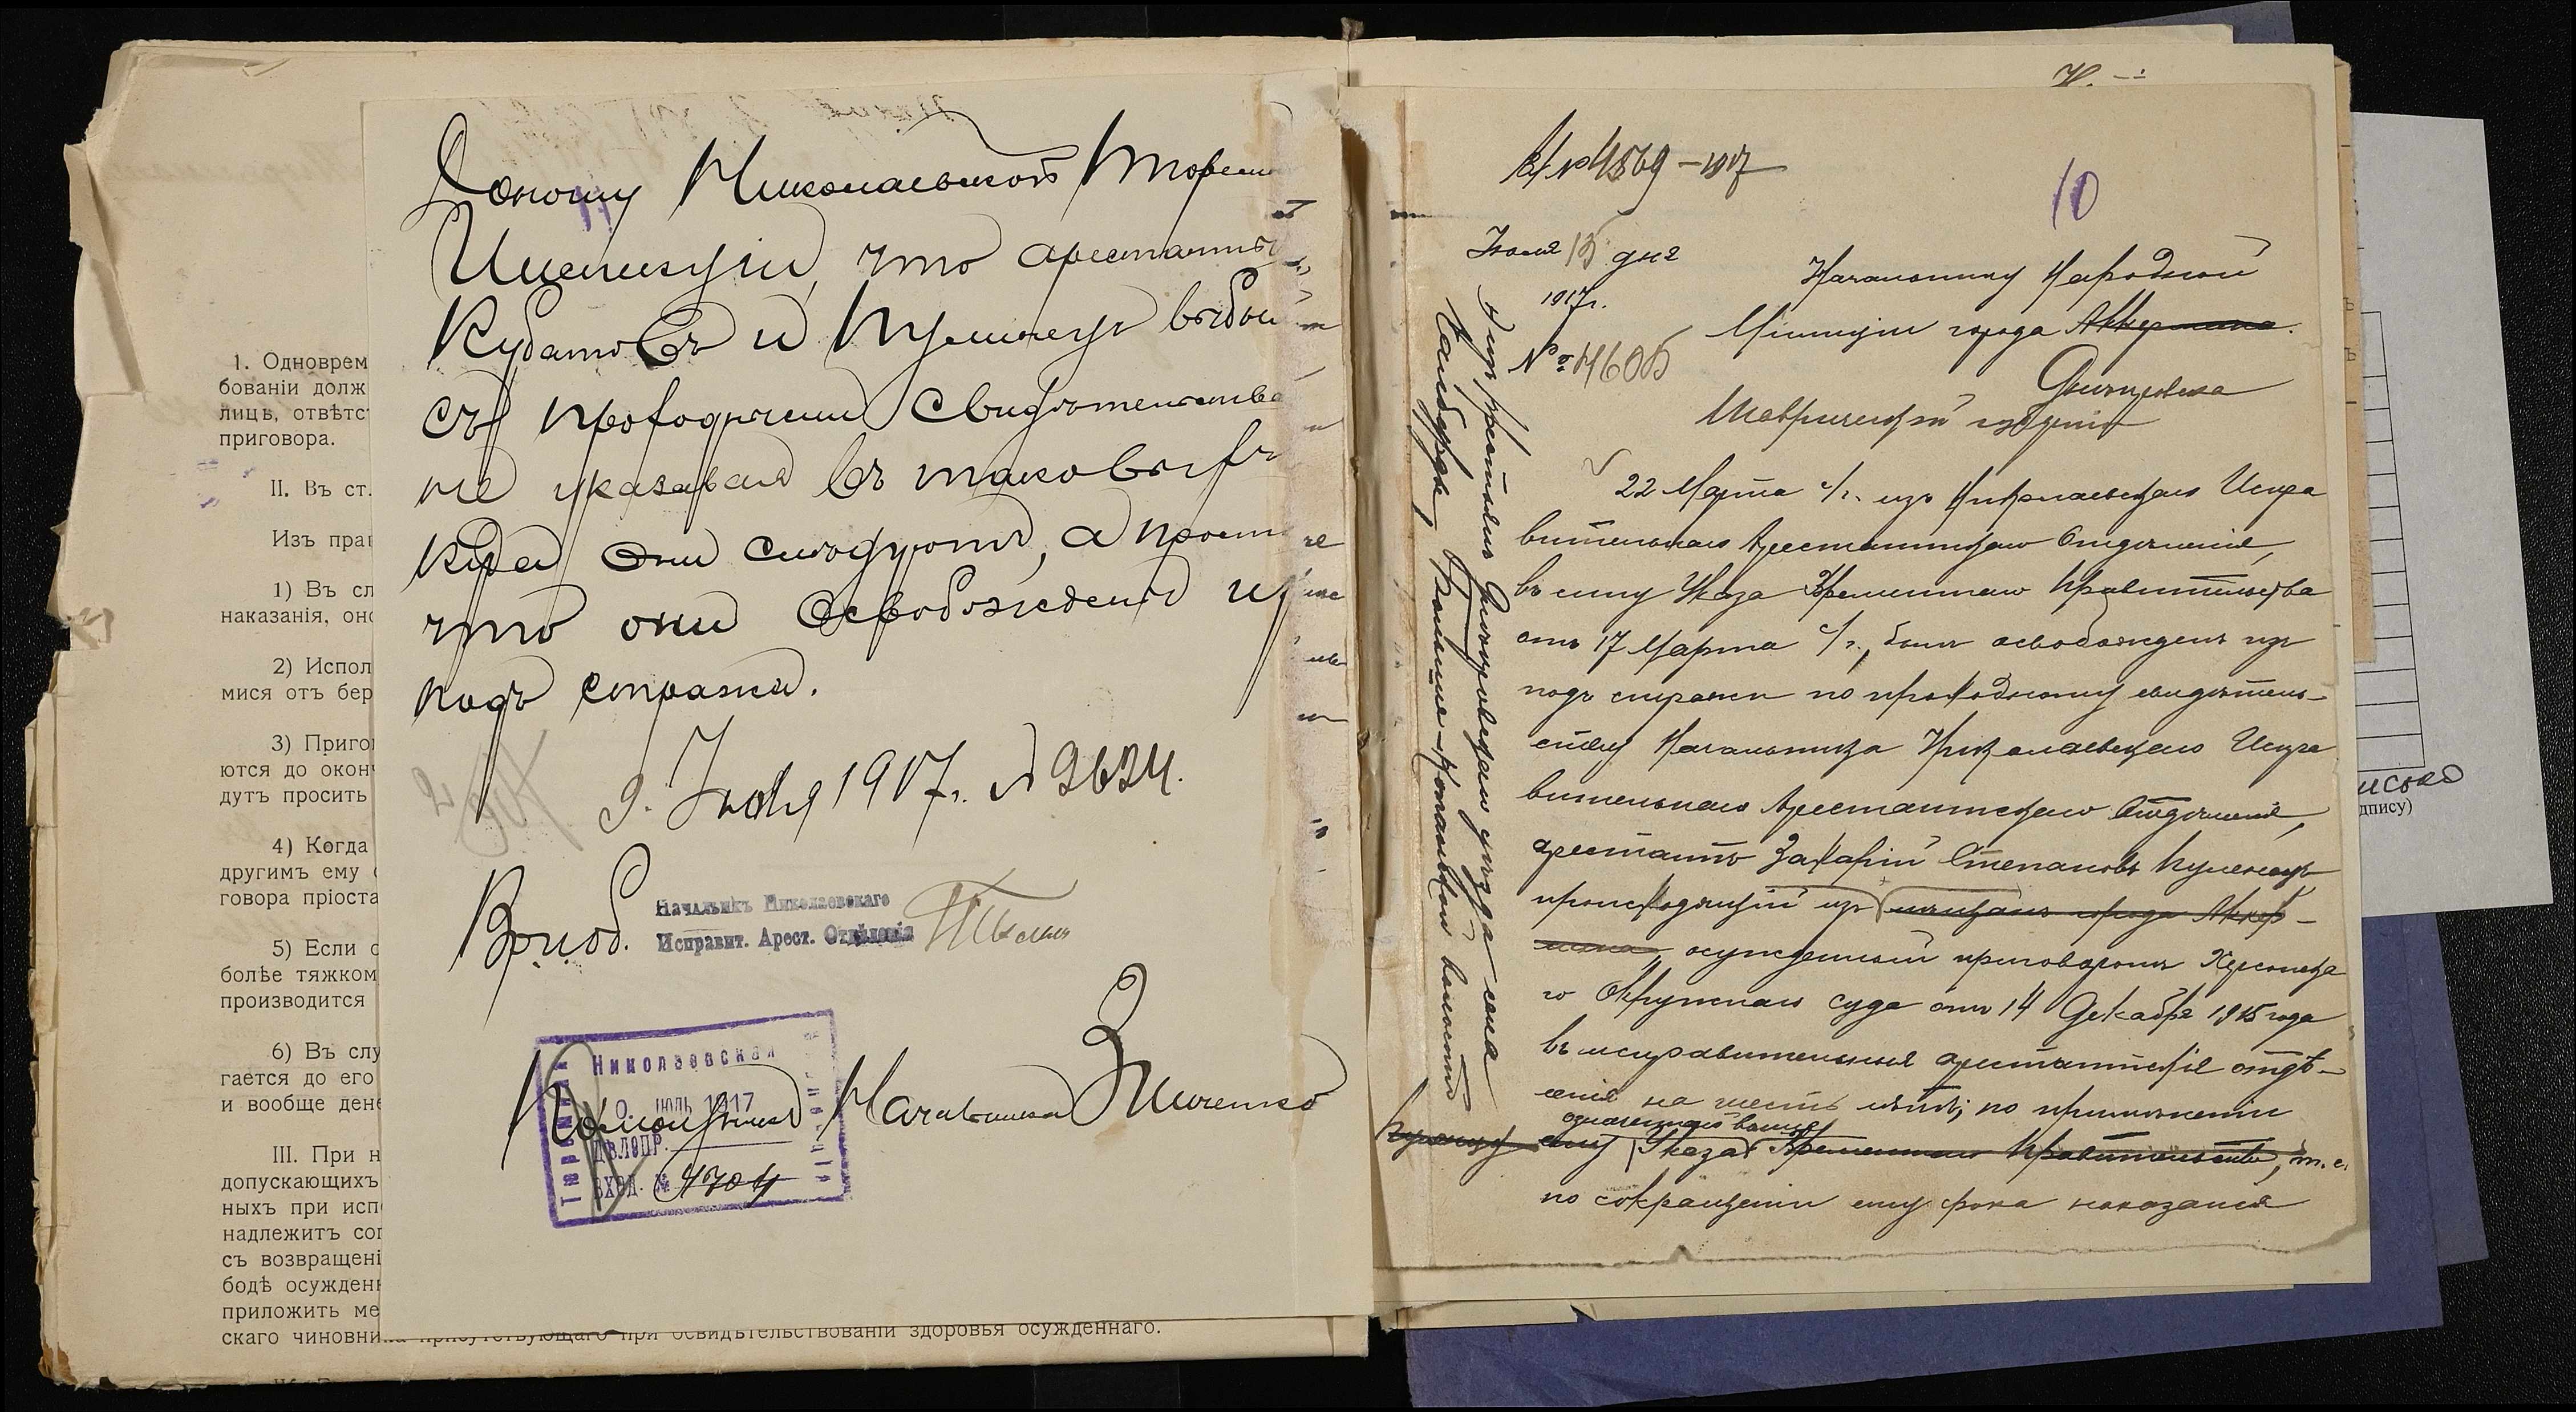 1. Одноврем
бованіи долж
лицъ, отвѣтс
приговора.
II. Въ ст.
Изъ прав
1) Въ сл
наказанія, онс
2) Испол
мися отъ бер
3) Приго
ются до оконч
дутъ просить
4) Когда
другимъ ему
говора пріоста
5) Если с
болѣе тяжком
производится
6) Въ слу
гается до его
и вообще дене
III. При н
допускающихъ
ныхъ при исп
надлежитъ сог
съ возвращені
бодѣ осужденн
приложить ме
скаго чиновника присутствующаго при освидѣтельствованіи здоровья осужденнаго.
Доношу Николаевской Тюремн
Инспекціи, что арестанты
Кубатовъ и Кулинецъ выбыли
съ проходными свидѣтельства
не указывая въ таковыхъ
куда они слѣдуютъ, а просто
что они освобождены изъ
подъ стражи.
9. Іюля 1917 г. № 2624.
Врид.
Начальникъ Николаевскаго
Исправит. Арест. Отдѣленія
Помощникъ Начальника Зинченко
Николаевская
Тюремная
Инспекція
ІЮЛЬ 1917
ДѢЛОПР.
ВХОД. № 4704
Вх № 4569 – 1917
10
Іюля 15 дня
1917 г.
№ 4605
Начальнику Народной
Милиціи города Аккермана.
Днѣпровска
Таврической губерніи
22 Марта с/г. изъ Николаевскаго Испра
вительнаго Арестантскаго Отдѣленія,
въ силу Указа Временнаго Правительства
отъ 17 Марта с/г., былъ освобожденъ изъ
подъ стражи по проходному свидѣтель-
ству Начальника Николаевскаго Испра
вительнаго Арестантскаго Отдѣленія,
арестантъ Захарій Степановъ Кулинецъ
происходящій изъ мѣщанъ города Аккер-
мана, осужденный приговоромъ Херсонска
го Окружнаго суда отъ 14 Декабря 1915 года
въ исправительныя арестантскія отдѣ-
ленія на шесть лѣтъ; по примѣненіи
означеннаго выше
ему Указа Временнаго Правительства, т. е.
по сокращеніи ему срока наказанія
крестьянъ Днѣпровскаго уѣзда села